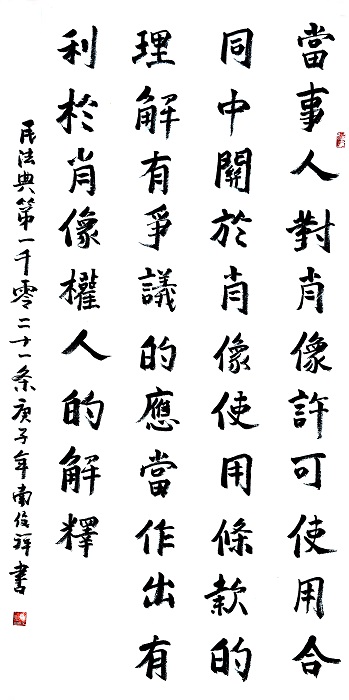 當事人對肖像許可使用合
同中關於肖像使用條款的
理解有爭議的應當作出有
利於肖像權人的解釋
民法典第一千零二十一条庚子年南俊祥書